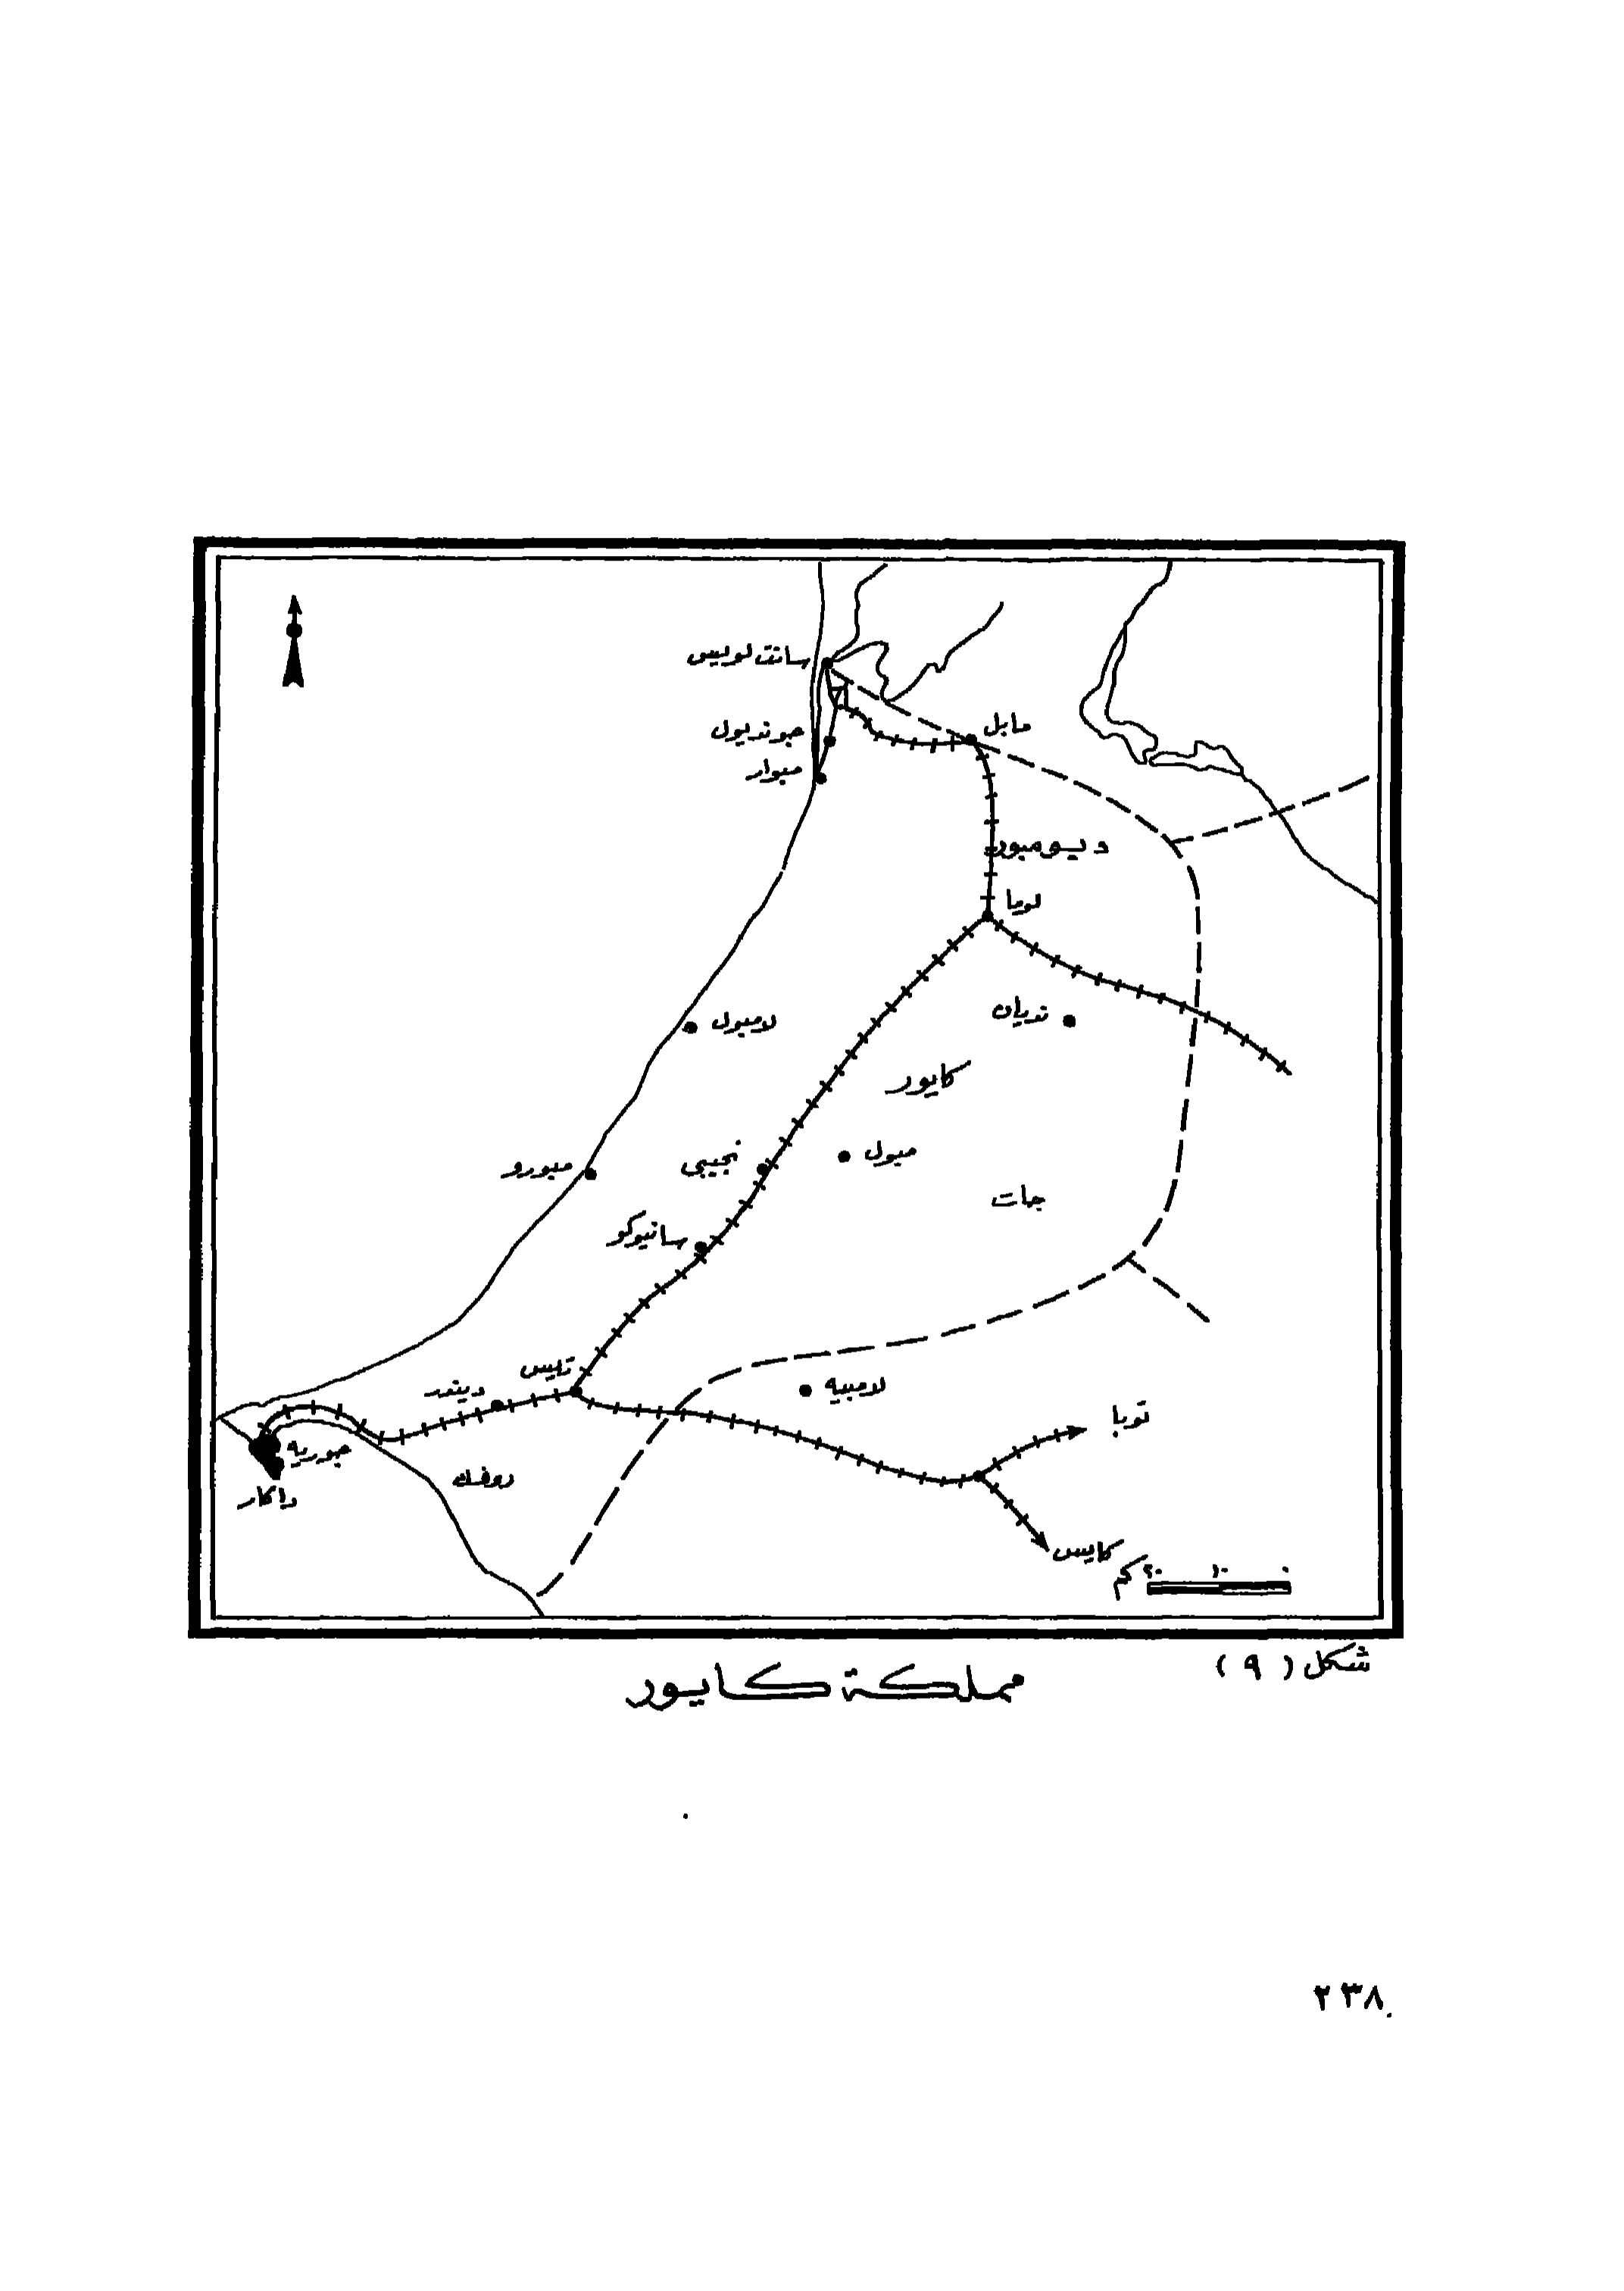 سانت لويس
جونديول
مبوار
مابل
ديومبور
لوما
لامبول
نديان
كايور
مبورو
نجيبى
مبول
جات
سانيوكو
تليس
ديندر
لامبيه
توبا
جوريه
روفسك
داكار
كايس
٠ ١٠ ٢٠ كم
شكل ( ٩ )
مملكة كايور
٢٣٨